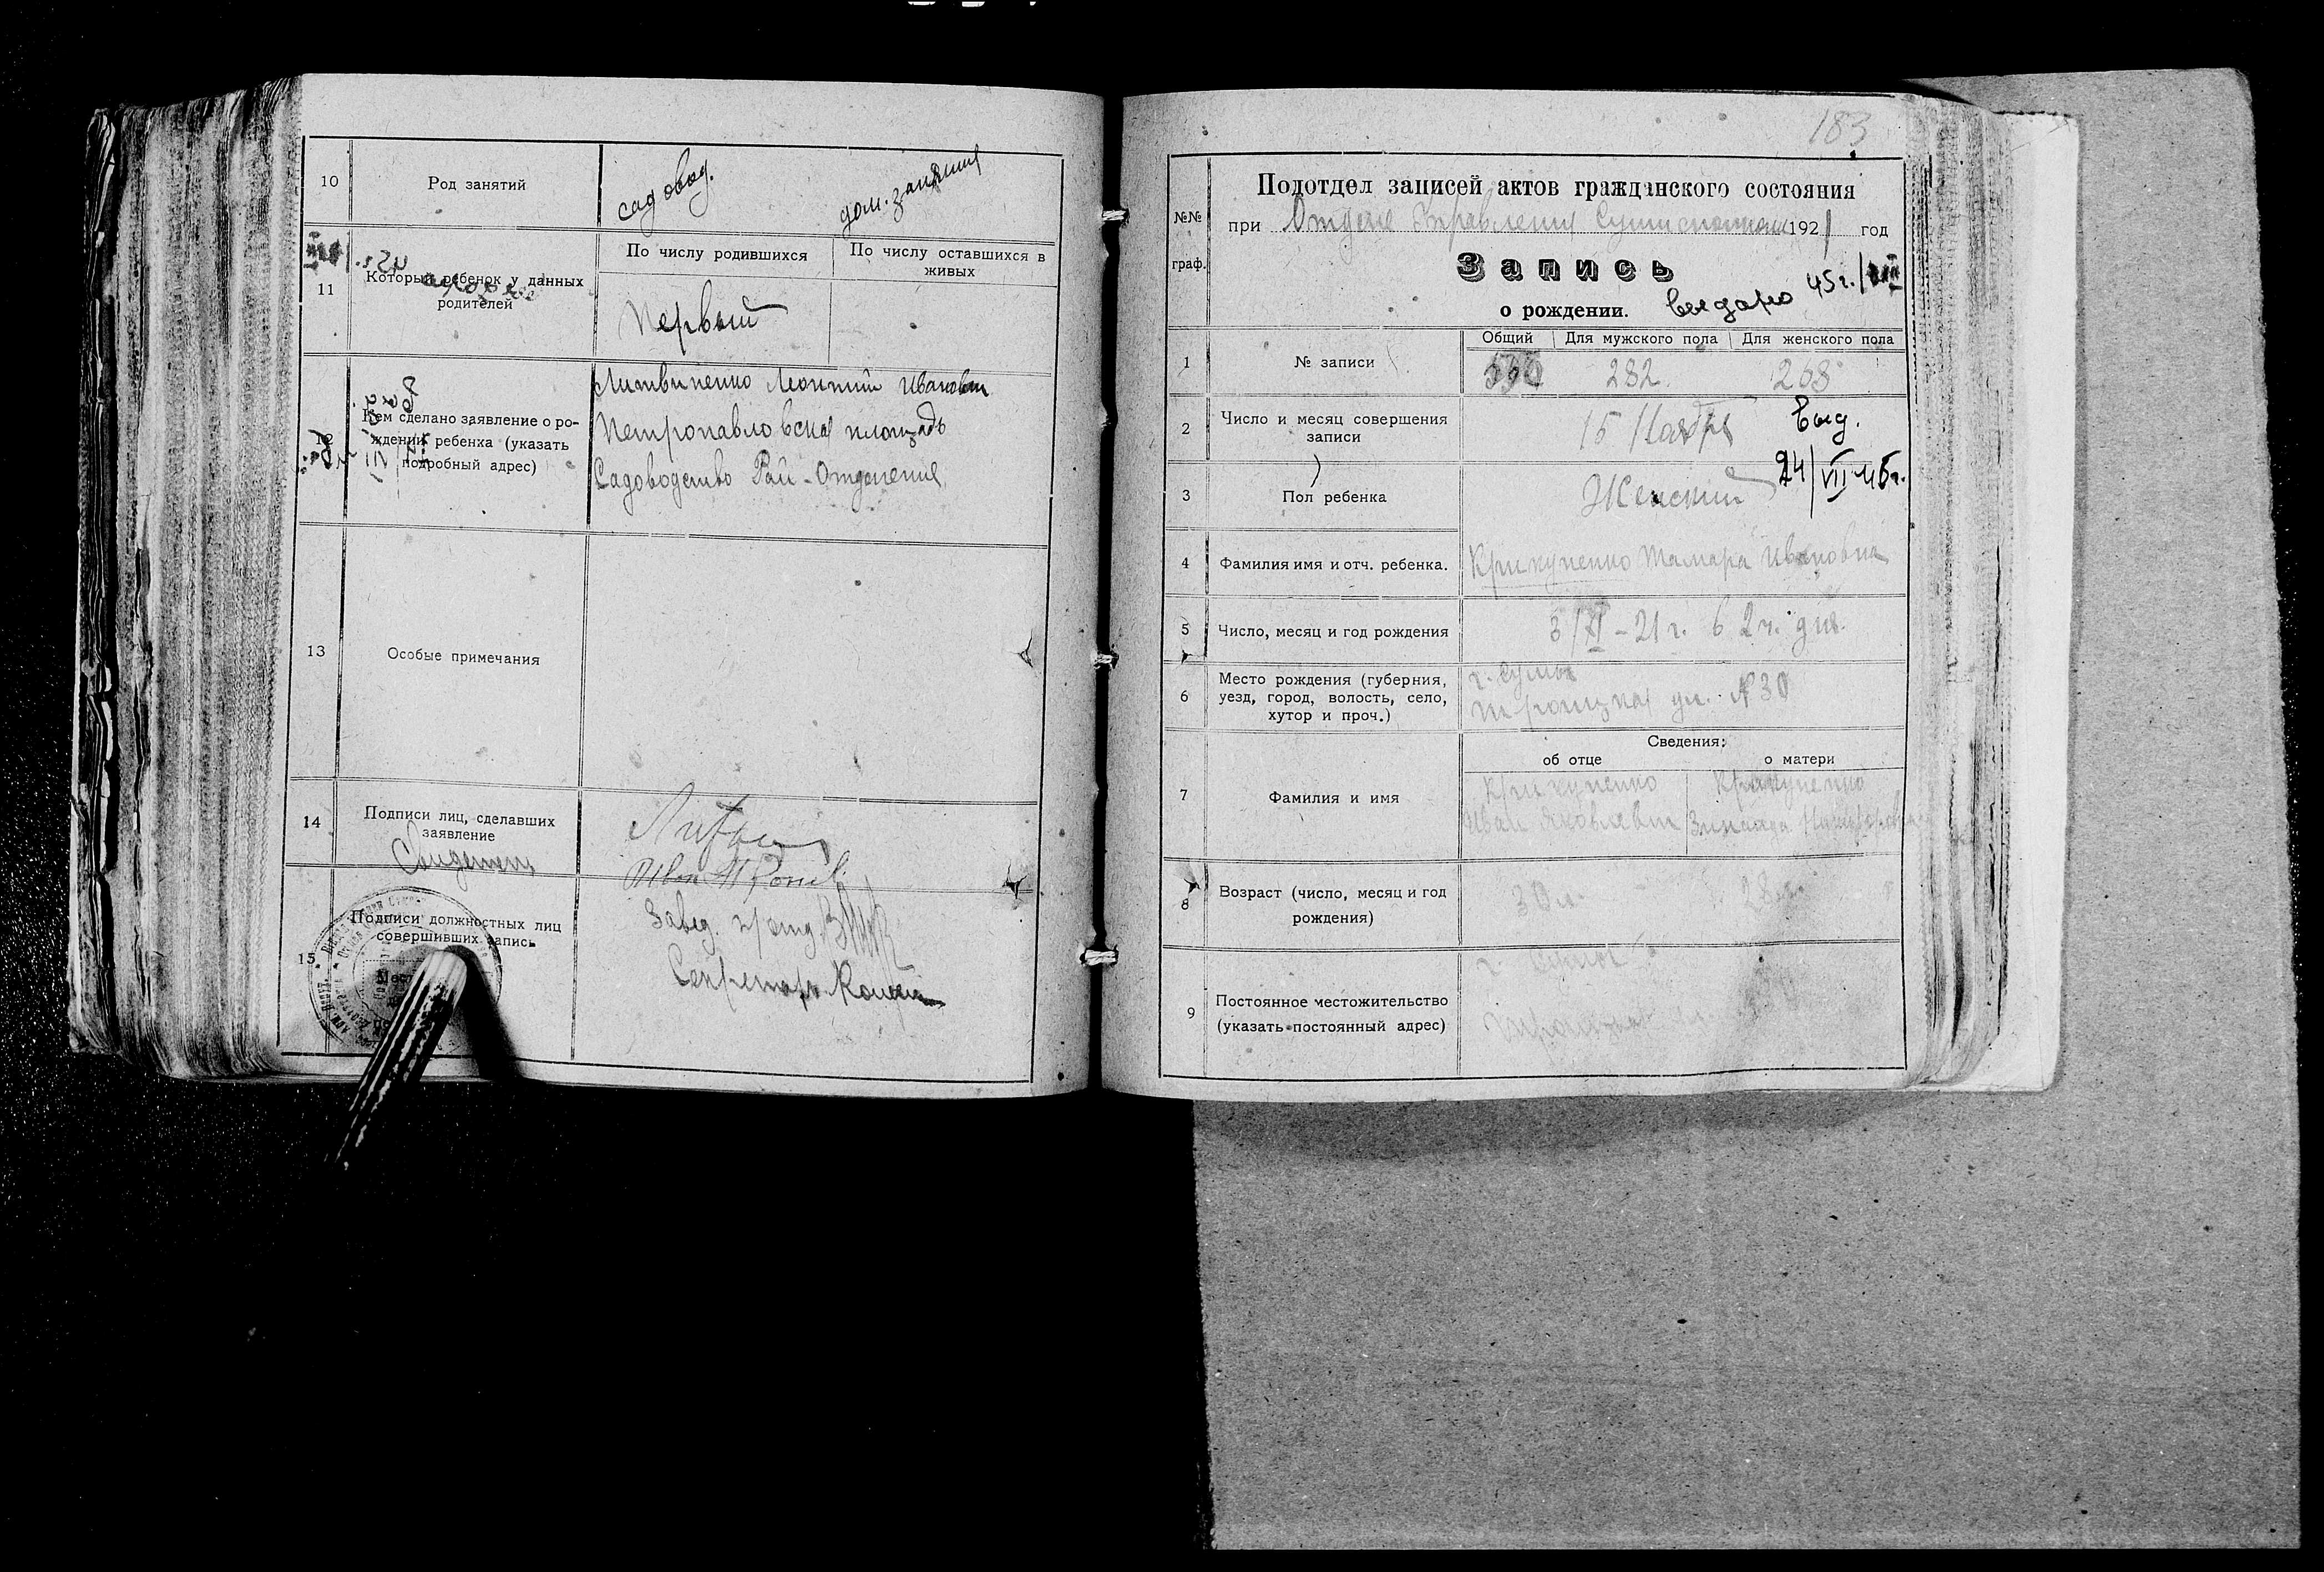 10 Род занятий садовод. дом. занятия
11 Который ребенок у данных родителей
По числу родившихся По числу оставшихся в живых
Первый
12 Кем сделано заявление о ро-
ждении ребенка (указать
подробный адрес)
Литвиненко Леонтий Иванович
Петропавловская площадь
Садоводство Рай-Отделения
13 Особые примечания
14 Подписи лиц, сделавших
заявление
Свидетель
15 Подписи должностных лиц
совершивших запись
Завед. п/отд.
Секретарь
183
Подотдел записей актов гражданского состояния
№№ граф.
при Отделе Управления 1921 год
Запись
о рождении.
выдано 45 г.
1 № записи
Общий Для мужского пола Для женского пола
282 268
2 Число и месяц совершения
записи
15 Ноября
выд.
24/VII 45г.
3 Пол ребенка Женский
4 Фамилия имя и отч. ребенка. Крикуненко Тамара Ивановна
5 Число, месяц и год рождения 3/XI-21 г. в 2 ч. дня.
6 Место рождения (губерния,
уезд, город, волость, село,
хутор и проч.)
г. Сумы
Троицкая ул. №30
Сведения:
об отце о матери
7 Фамилия и имя
Крикуненко Крикуненко
Иван Яковлевич Зинаида Никифоровна
8 Возраст (число, месяц и год
рождения)
30 л. 28 л.
9 Постоянное местожительство
(указать постоянный адрес)
г. Сумы
Троицкая ул.